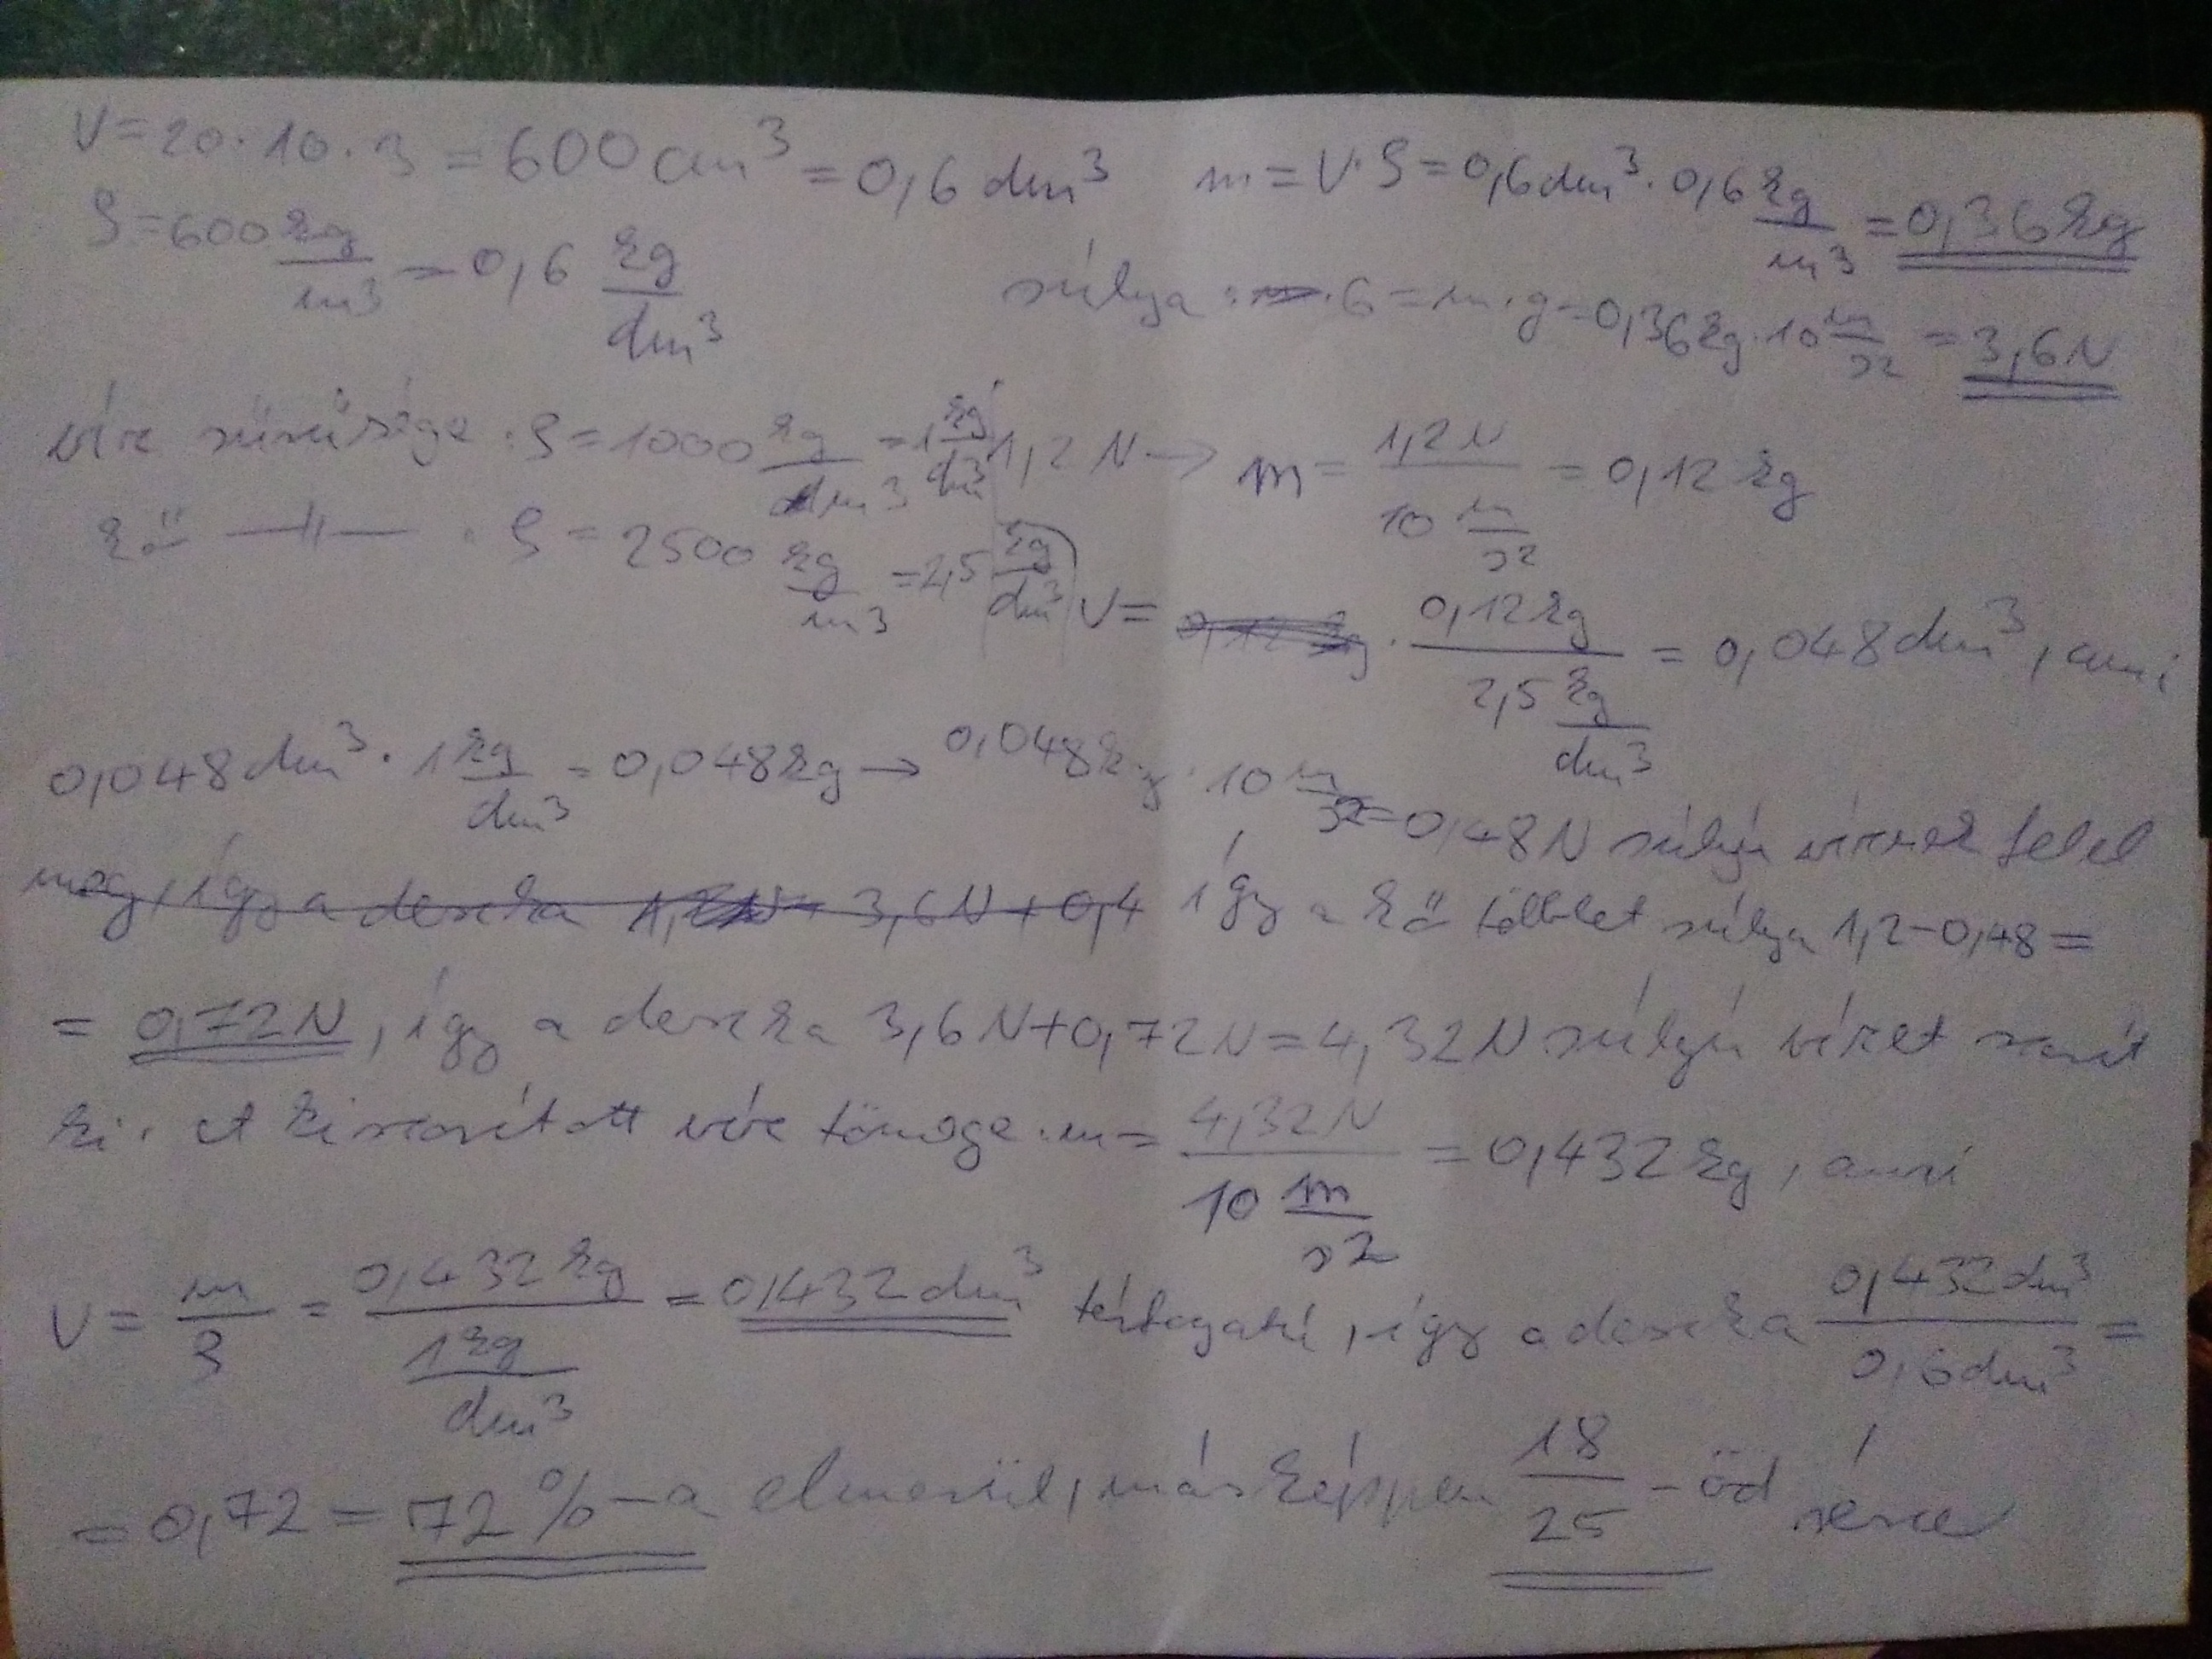 V = 20 · 10 · 3 = 600 cm³ = 0,6 dm³
ρ = 600 kg/m³ = 0,6 kg/dm³
m = V · ρ = 0,6 dm³ · 0,6 kg/m³ = 0,36 kg
súlya : G = m · g = 0,36 kg · 10 m/s² = 3,6 N
víz sűrűsége : ρ = 1000 kg/dm³ = 1 kg/dm³
kő —〃— : ρ = 2500 kg/m³ = 2,5 kg/dm³
1,2 N → m = 1,2 N / 10 m/s² = 0,12 kg
V = 0,12 kg / 2,5 kg/dm³ = 0,048 dm³, ami
0,048 dm³ · 1 kg/dm³ = 0,048 kg → 0,048 kg · 10 m/s² = 0,48 N súlyú víznek felel
meg, így a deszka 3,6 N + 0,4 így a kő többlet súlya 1,2 - 0,48 =
= 0,72 N, így a deszka 3,6 N + 0,72 N = 4,32 N súlyú vizet szorít
ki. A kiszorított víz tömege : m = 4,32 N / 10 m/s² = 0,432 kg, ami
V = m/ρ = 0,432 kg / 1 kg/dm³ = 0,432 dm³ térfogatú, így a deszka 0,432 dm³ / 0,6 dm³ =
= 0,72 = 72 %-a elmerül, másképpen 18/25 - öd része